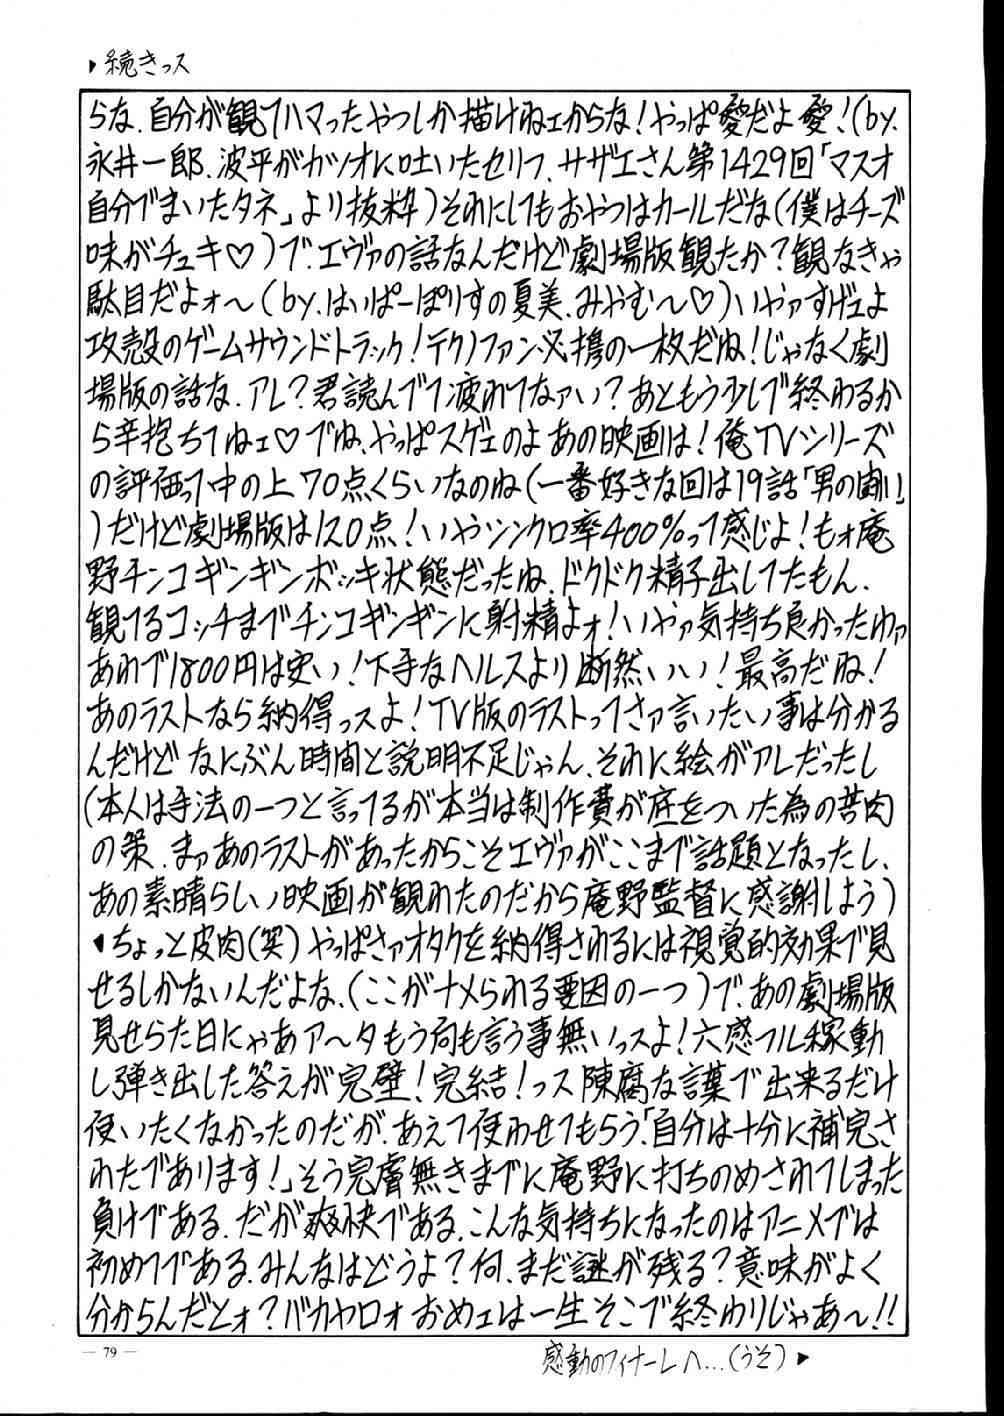 ▶続きっス
らな、自分が観てハマったやつしか描けねェからな！やっぱ愛だよ愛！(by.
永井一郎、波平がカツオに吐いたセリフ、サザエさん第1429回「マスオ
自分でまいたタネ」より抜粋)それにしてもおやつはカールだな(僕はチーズ
味がチュキ♡)で、エヴァの話なんだけど劇場版観たか？観なきゃ
駄目だよォ〜(by.はいぱーぽりすの夏美、みやむ〜♡)いやァすげェよ
攻殻のゲームサウンドトラック！テクノファン必携の一枚だね！じゃなく劇
場版の話な、アレ？君読んでて疲れてなァい？あともう少しで終わるか
ら辛抱ちてねェ♡でね、やっぱスゲェのよあの映画は！俺TVシリーズ
の評価って中の上70点くらいなのね(一番好きな回は19話「男の闘い」
)だけど劇場版は120点！いやシンクロ率400%って感じよ！もォ庵
野チンコギンギンボッキ状態だったね、ドクドク精子出してたもん、
観てるコッチまでチンコギンギンに射精よォ！いやァ気持ち良かったわァ
あれで1800円は安い！下手なヘルスより断然いい！最高だね！
あのラストなら納得っスよ！TV版のラストってさァ言いたい事は分かる
んだけどなにぶん時間と説明不足じゃん、それに絵がアレだったし
(本人は手法の一つと言ってるが本当は制作費が底をついた為の苦肉
の策、まァあのラストがあったからこそエヴァがここまで話題となったし、
あの素晴らしい映画が観れたのだから庵野監督に感謝しよう)
♥ちょっと皮肉(笑)やっぱさァオタクを納得されるには視覚的効果で見
せるしかないんだよな、(ここがナメられる要因の一つ)で、あの劇場版
見せらた日にゃあア〜タもう何も言う事無いっスよ！六感フル稼動
し弾き出した答えが完璧！完結！っス陳腐な言葉で出来るだけ
使いたくなかったのだが、あえて使わせてもらう、「自分は十分に補完さ
れたであります！」そう完膚無きまでに庵野に打ちのめされてしまった
負けである、だが爽快である、こんな気持ちになったのはアニメでは
初めてである、みんなはどうよ？何、まだ謎が残る？意味がよく
分からんだとォ？バカヤロォおめェは一生そこで終わりじゃあ〜!!
— 79 —
感動のフィナーレへ…(うそ)▶